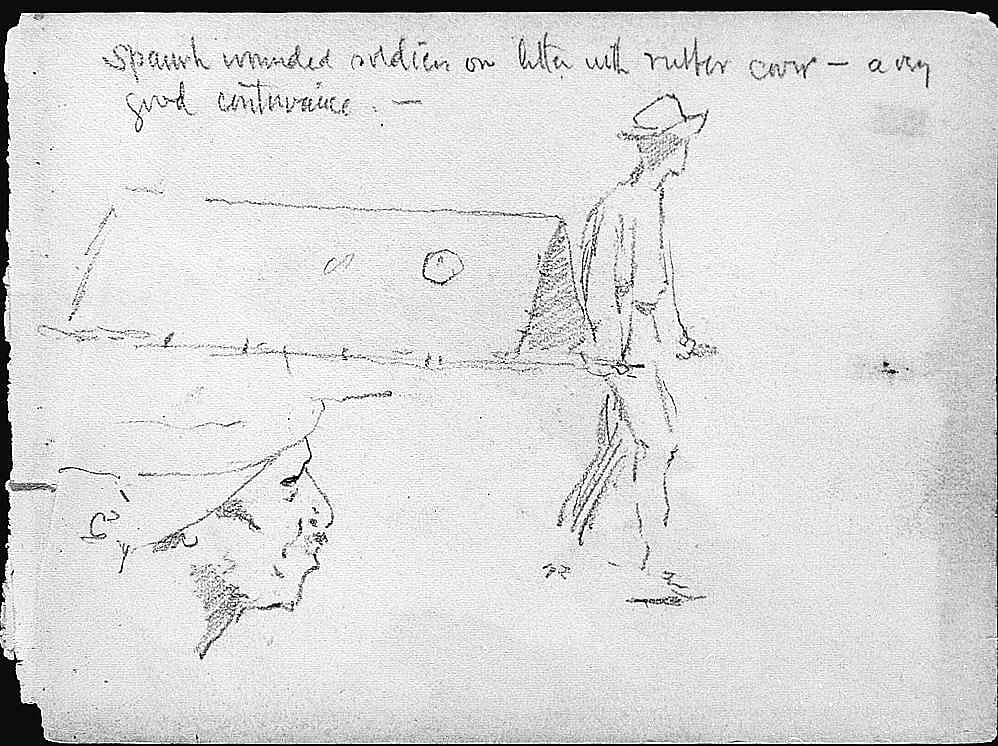 Spanish wounded soldier on litter with rubber cover — a very
good contrivance. —